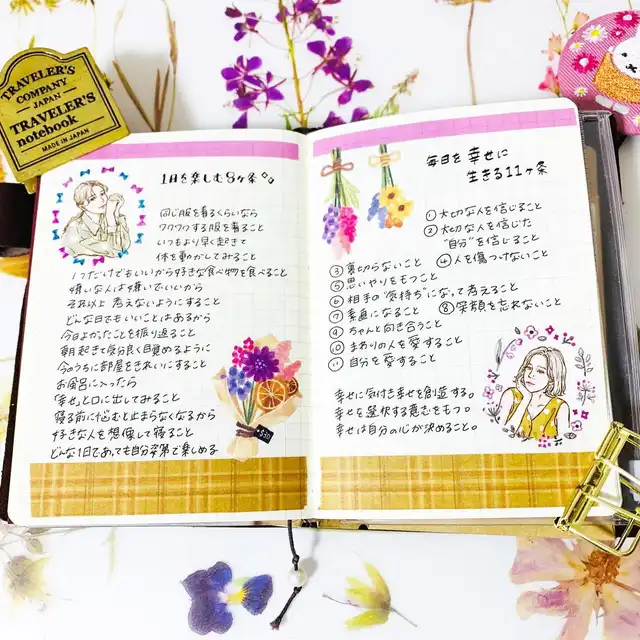 TRAVELER'S
COMPANY
JAPAN
TRAVELER'S
notebook
MADE IN JAPAN
1日を楽しむ8ヶ条
同じ服を着るくらいなら
ワクワクする服を着ること
いつもより早く起きて
体を動かしてみること
1つだけでもいいから好きな食べ物を食べること
嫌いな人は嫌いでいいから
それ以上考えないようにすること
どんな日でもいいことはあるから
今日よかったことを振り返ること
朝起きて気分良く目覚めるように
今のうちに部屋をきれいにすること
お風呂に入ったら
「幸せ」と口に出してみること
寝る前に悩むと止まらなくなるから
好きな人を想像して寝ること
どんな1日であっても自分次第で楽しめる
毎日を幸せに
生きる11ヶ条
①大切な人を信じること
②大切な人を信じた
"自分"を信じること
③裏切らないこと ④人を傷つけないこと
⑤思いやりをもつこと
⑥相手の"気持ち"になって考えること
⑦素直になること ⑧笑顔を忘れないこと
⑨ちゃんと向き合うこと
⑩まわりの人を愛すること
⑪自分を愛すること
幸せに気付き幸せを創造する。
幸せを選択する意志をもつ。
幸せは自分の心が決めること。